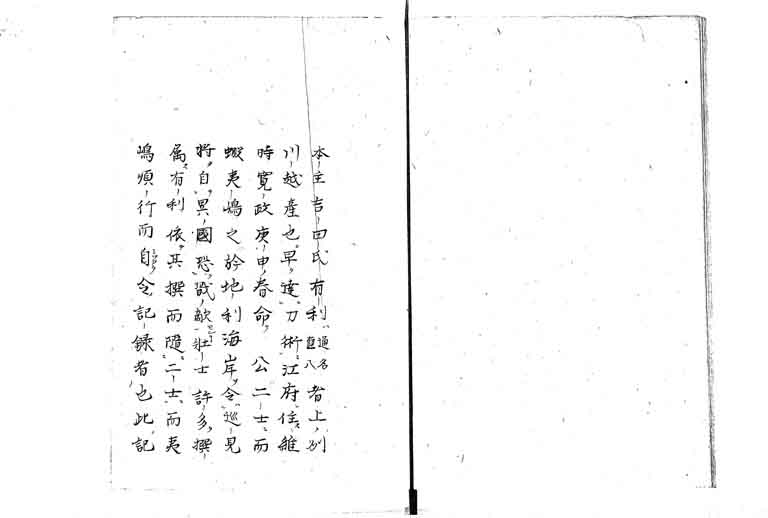 本主吉田氏有利通名直八者上別
川越産也早達刀術江府住雖
時寛政庚申春命公二士而
蝦夷嶋之於地利海岸令巡見
将自異國恐戝敵壮士許多撰
属有利依其撰而随二士而夷
嶋順行而自令記録者也此記